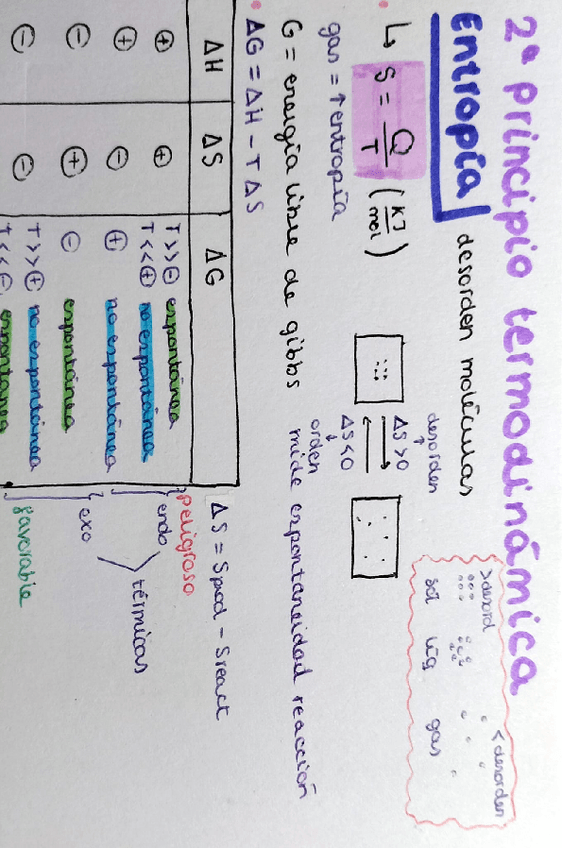 2º principio termodinámica
Entropía desorden moléculas
↳ S = Q/T (KJ/mol)
gas = ↑entropía
desorden
↑
ΔS>0
ΔS<0
↓
orden
>desord
<desorden
sol líq gas
G = energía libre de gibbs mide espontaneidad reacción
ΔG = ΔH - TΔS
ΔS = Sprod - Sreact
ΔH ΔS ΔG
⊕ ⊕ T>>⊖ espontánea
T<<⊕ no espontánea
⊕ ⊖ ⊕ no espontánea
⊖ ⊕ ⊖ espontánea
⊖ ⊖ T>>⊕ no espontánea
T<<⊖ espontánea
peligrosa
endo
exo
térmicas
favorable